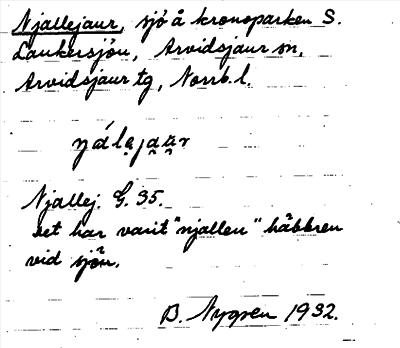 Njallejaur, sjö å kronoparken S.
Laukersjön, Arvidsjaur sn,
Arvidsjaur tg, Norrb. l.
Njallej. G. 35.
Det har varit "njallen" häbbren
vid sjön.
B. Nygren 1932.